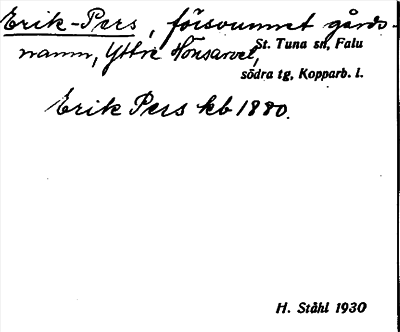 Erik-Pers, försvunnet gårds-
namn, Yttre Hönsarvet, St. Tuna sn, Falu
södra tg, Kopparb. l.
Erik Pers kb 1880.
H. Ståhl 1930